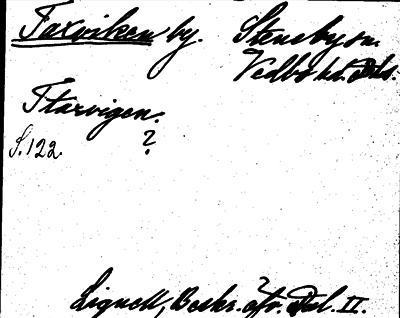 Taxviken by. Stenebysn.
Vedbo hd. Dls.
Ttarvigen.
S. 122. ?
Lignell, Beskr. öfv. Dal. II.